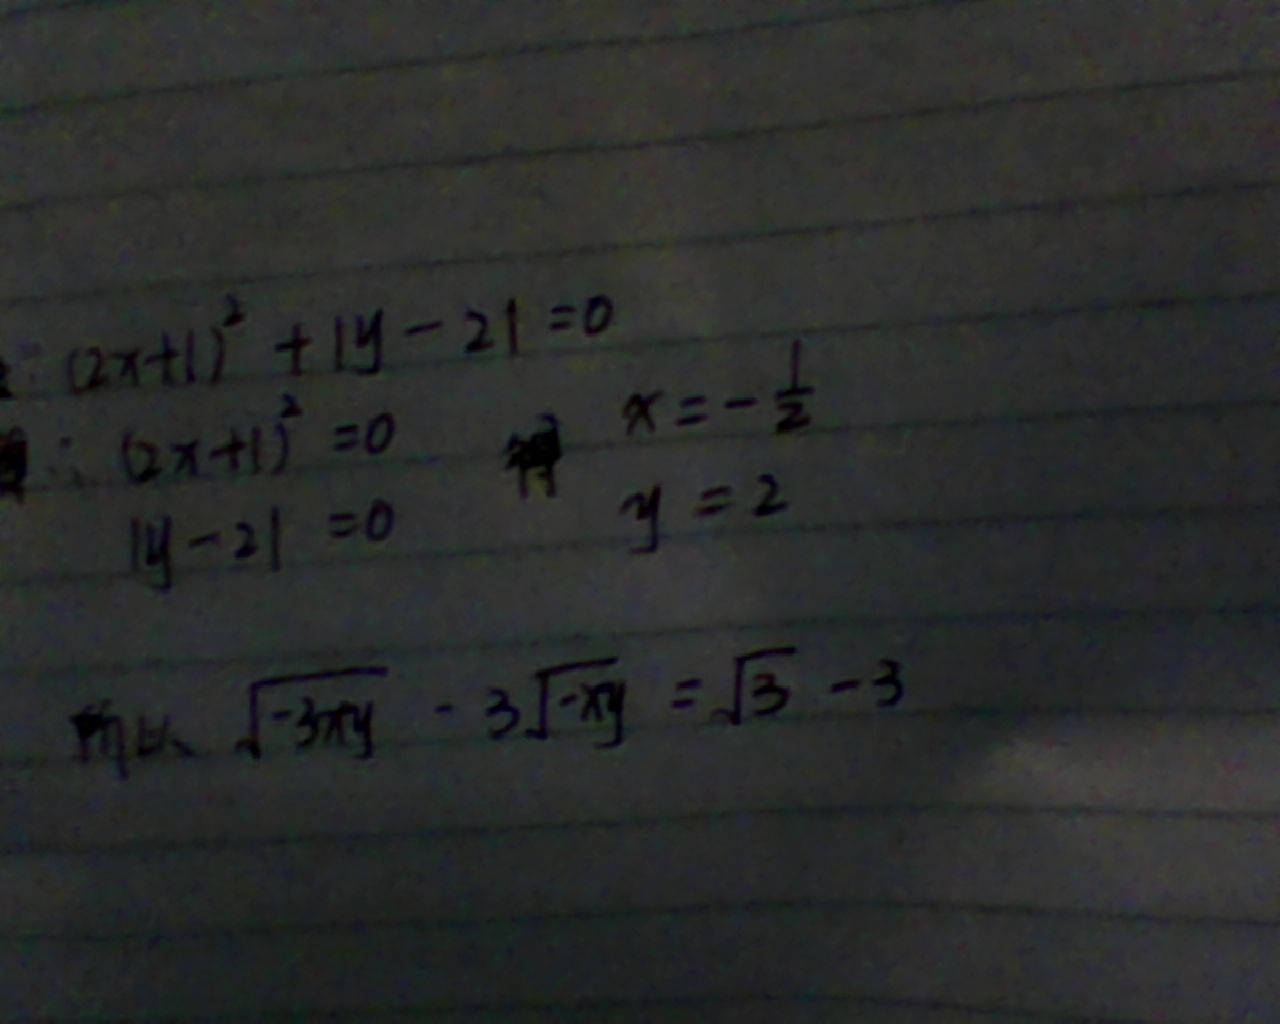 (2x+1)² + |y-2| =0
∴ (2x+1)² =0 得 x = - 1/2
|y-2| =0 y = 2
所以 √-3xy - 3√-xy = √3 - 3